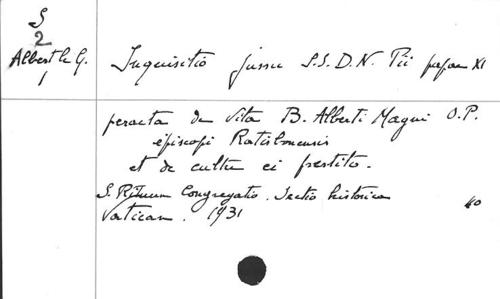 S
2
Albert le G.
1
Inquisitio jussu S.S.D.N. Pii papae XI
peracta de vita B. Alberti Magni O.P.
episcopi Ratisbonensis
et de cultu ei prestito.
S. Rituum Congregatio. Sectio historica
Vatican. 1931
40